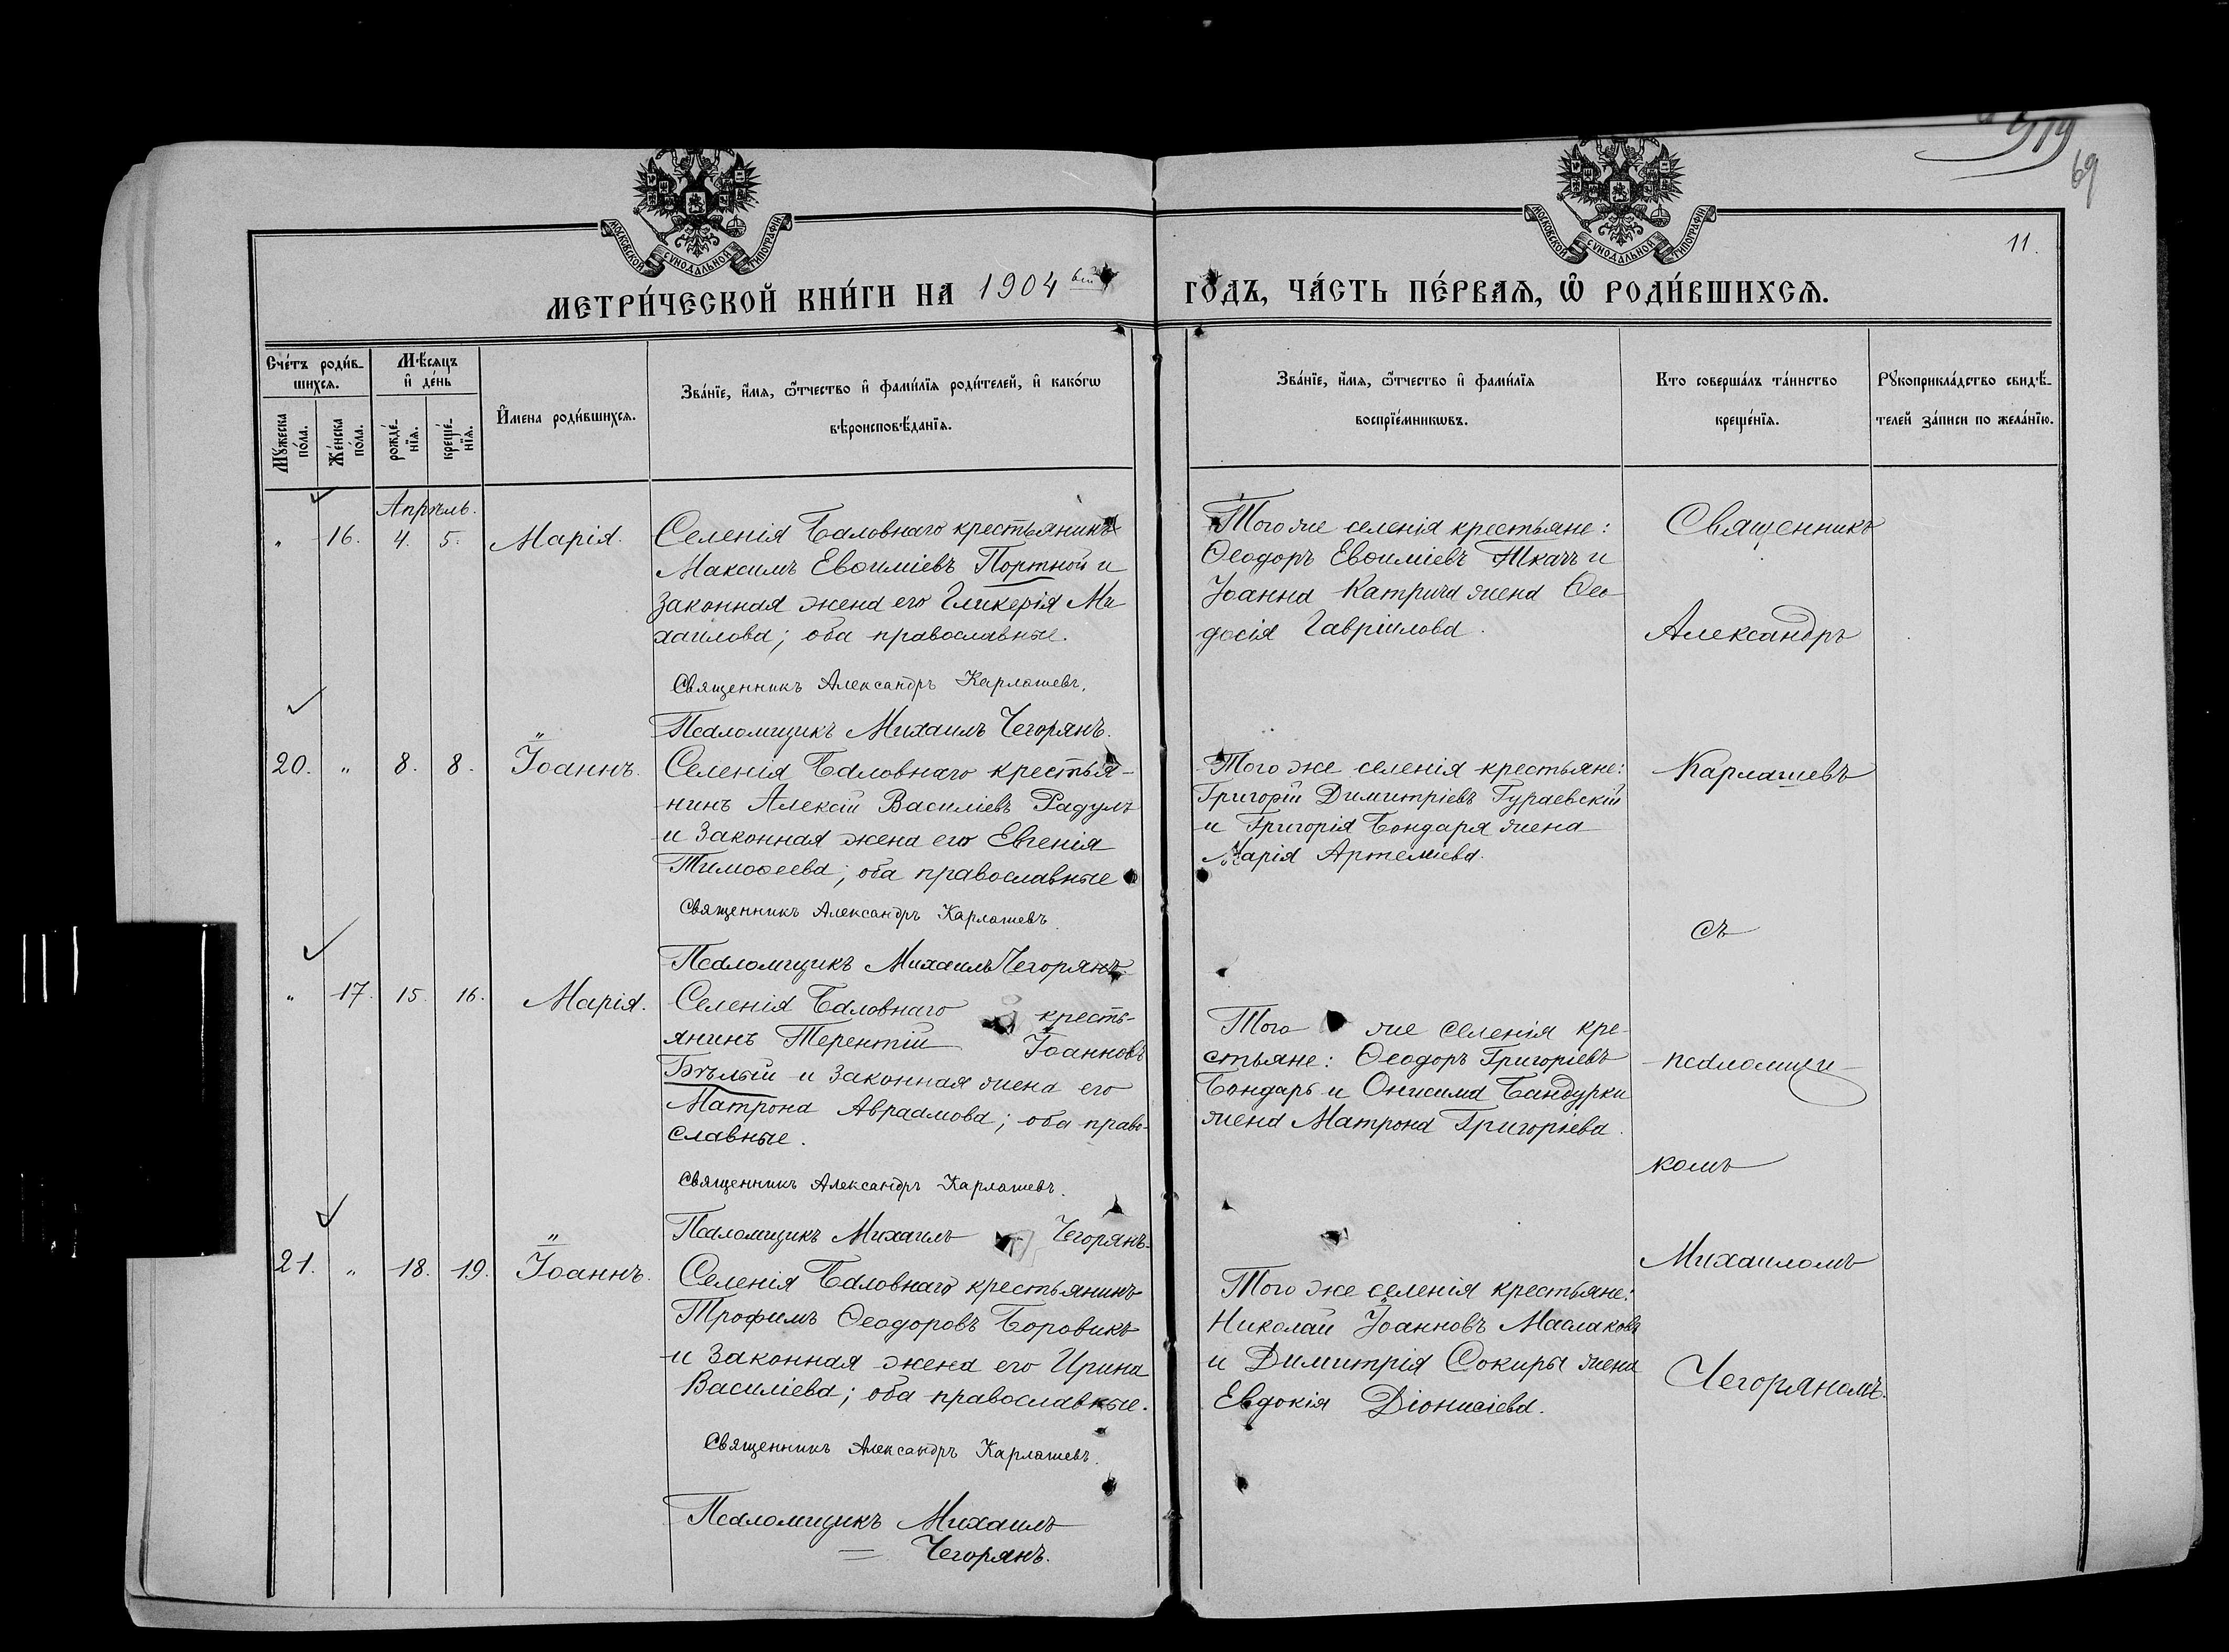 919
69
МОСКОВСКОЙ СУНОДАЛЬНОЙ ТИПОГРАФІИ
МОСКОВСКОЙ СУНОДАЛЬНОЙ ТИПОГРАФІИ
11.
МЕТРИ́ЧЕСКОЙ КНИ́ГИ НА 1904 ГО́ДЪ, ЧА́СТЬ ПЕ́РВАѦ, Ѡ҆ РОДИ́ВШИХСѦ.
Сче́тъ роди́в-
шихсѧ.
Мꙋ́жеска по́ла.
Же́нска по́ла.
Мѣ́сѧцъ и҆ де́нь
рожде́-нїѧ.
креще́-нїѧ.
И҆мена роди́вшихсѧ.
Зва́нїе, и҆́мѧ, ѻ҆́тчество и҆ фами́лїѧ роди́телей, и҆ како́гѡ
вѣроисповѣ́данїѧ.
Зва́нїе, и҆́мѧ, ѻ҆́тчество и҆ фами́лїѧ
воспрїе́мникѡвъ.
Кто соверша́лъ та́инство
креще́нїѧ.
Рꙋкоприкла́дство свидѣ́-
телей за́писи по жела́нїю.
Апрѣль.
" 16. 4. 5. Марія.
Селенія Баловнаго крестьянинъ
Максимъ Евѳиміевъ Портной и
законная жена его Гликерія Ми
хаилова; оба православные.
Священникъ Александръ Карлашевъ.
Псаломщикъ Михаилъ Чегорянъ.
Того же селенія крестьяне:
Ѳеодоръ Евѳиміевъ Ткачъ и
Іоанна Катрича жена Ѳео
досія Гавріилова.
20. " 8. 8. Іоаннъ.
Селенія Баловнаго крестья-
нинъ Алексій Василіевъ Радулъ
и законная жена его Евгенія
Тимоѳеева; оба православные
Священникъ Александръ Карлашевъ.
Псаломщикъ Михаилъ Чегорянъ.
Того же селенія крестьяне:
Григорій Димитріевъ Гураевскій
и Григорія Бондаря жена
Марія Артеміева.
" 17. 15. 16. Марія.
Селенія Баловнаго кресть-
янинъ Терентій Іоанновъ
Бѣлый и законная жена его
Матрона Авраамова; оба право-
славные.
Священникъ Александръ Карлашевъ.
Псаломщикъ Михаилъ Чегорянъ.
Того же селенія кре-
стьяне: Ѳеодоръ Григоріевъ
Бондарь и Онисима Бандурки
жена Матрона Григоріева.
21. " 18. 19. Іоаннъ.
Селенія Баловнаго крестьянинъ
Трофимъ Ѳеодоровъ Боровикъ
и законная жена его Ирина
Василіева; оба православные.
Священникъ Александръ Карлашевъ.
Псаломщикъ Михаилъ
Чегорянъ.
Того же селенія крестьяне:
Николай Іоанновъ Маслаковъ
и Димитрія Сокиры жена
Евдокія Діонисіева.
Священникъ
Александръ
Карлашевъ
съ
псаломщи-
комъ
Михаиломъ
Чегоряномъ.